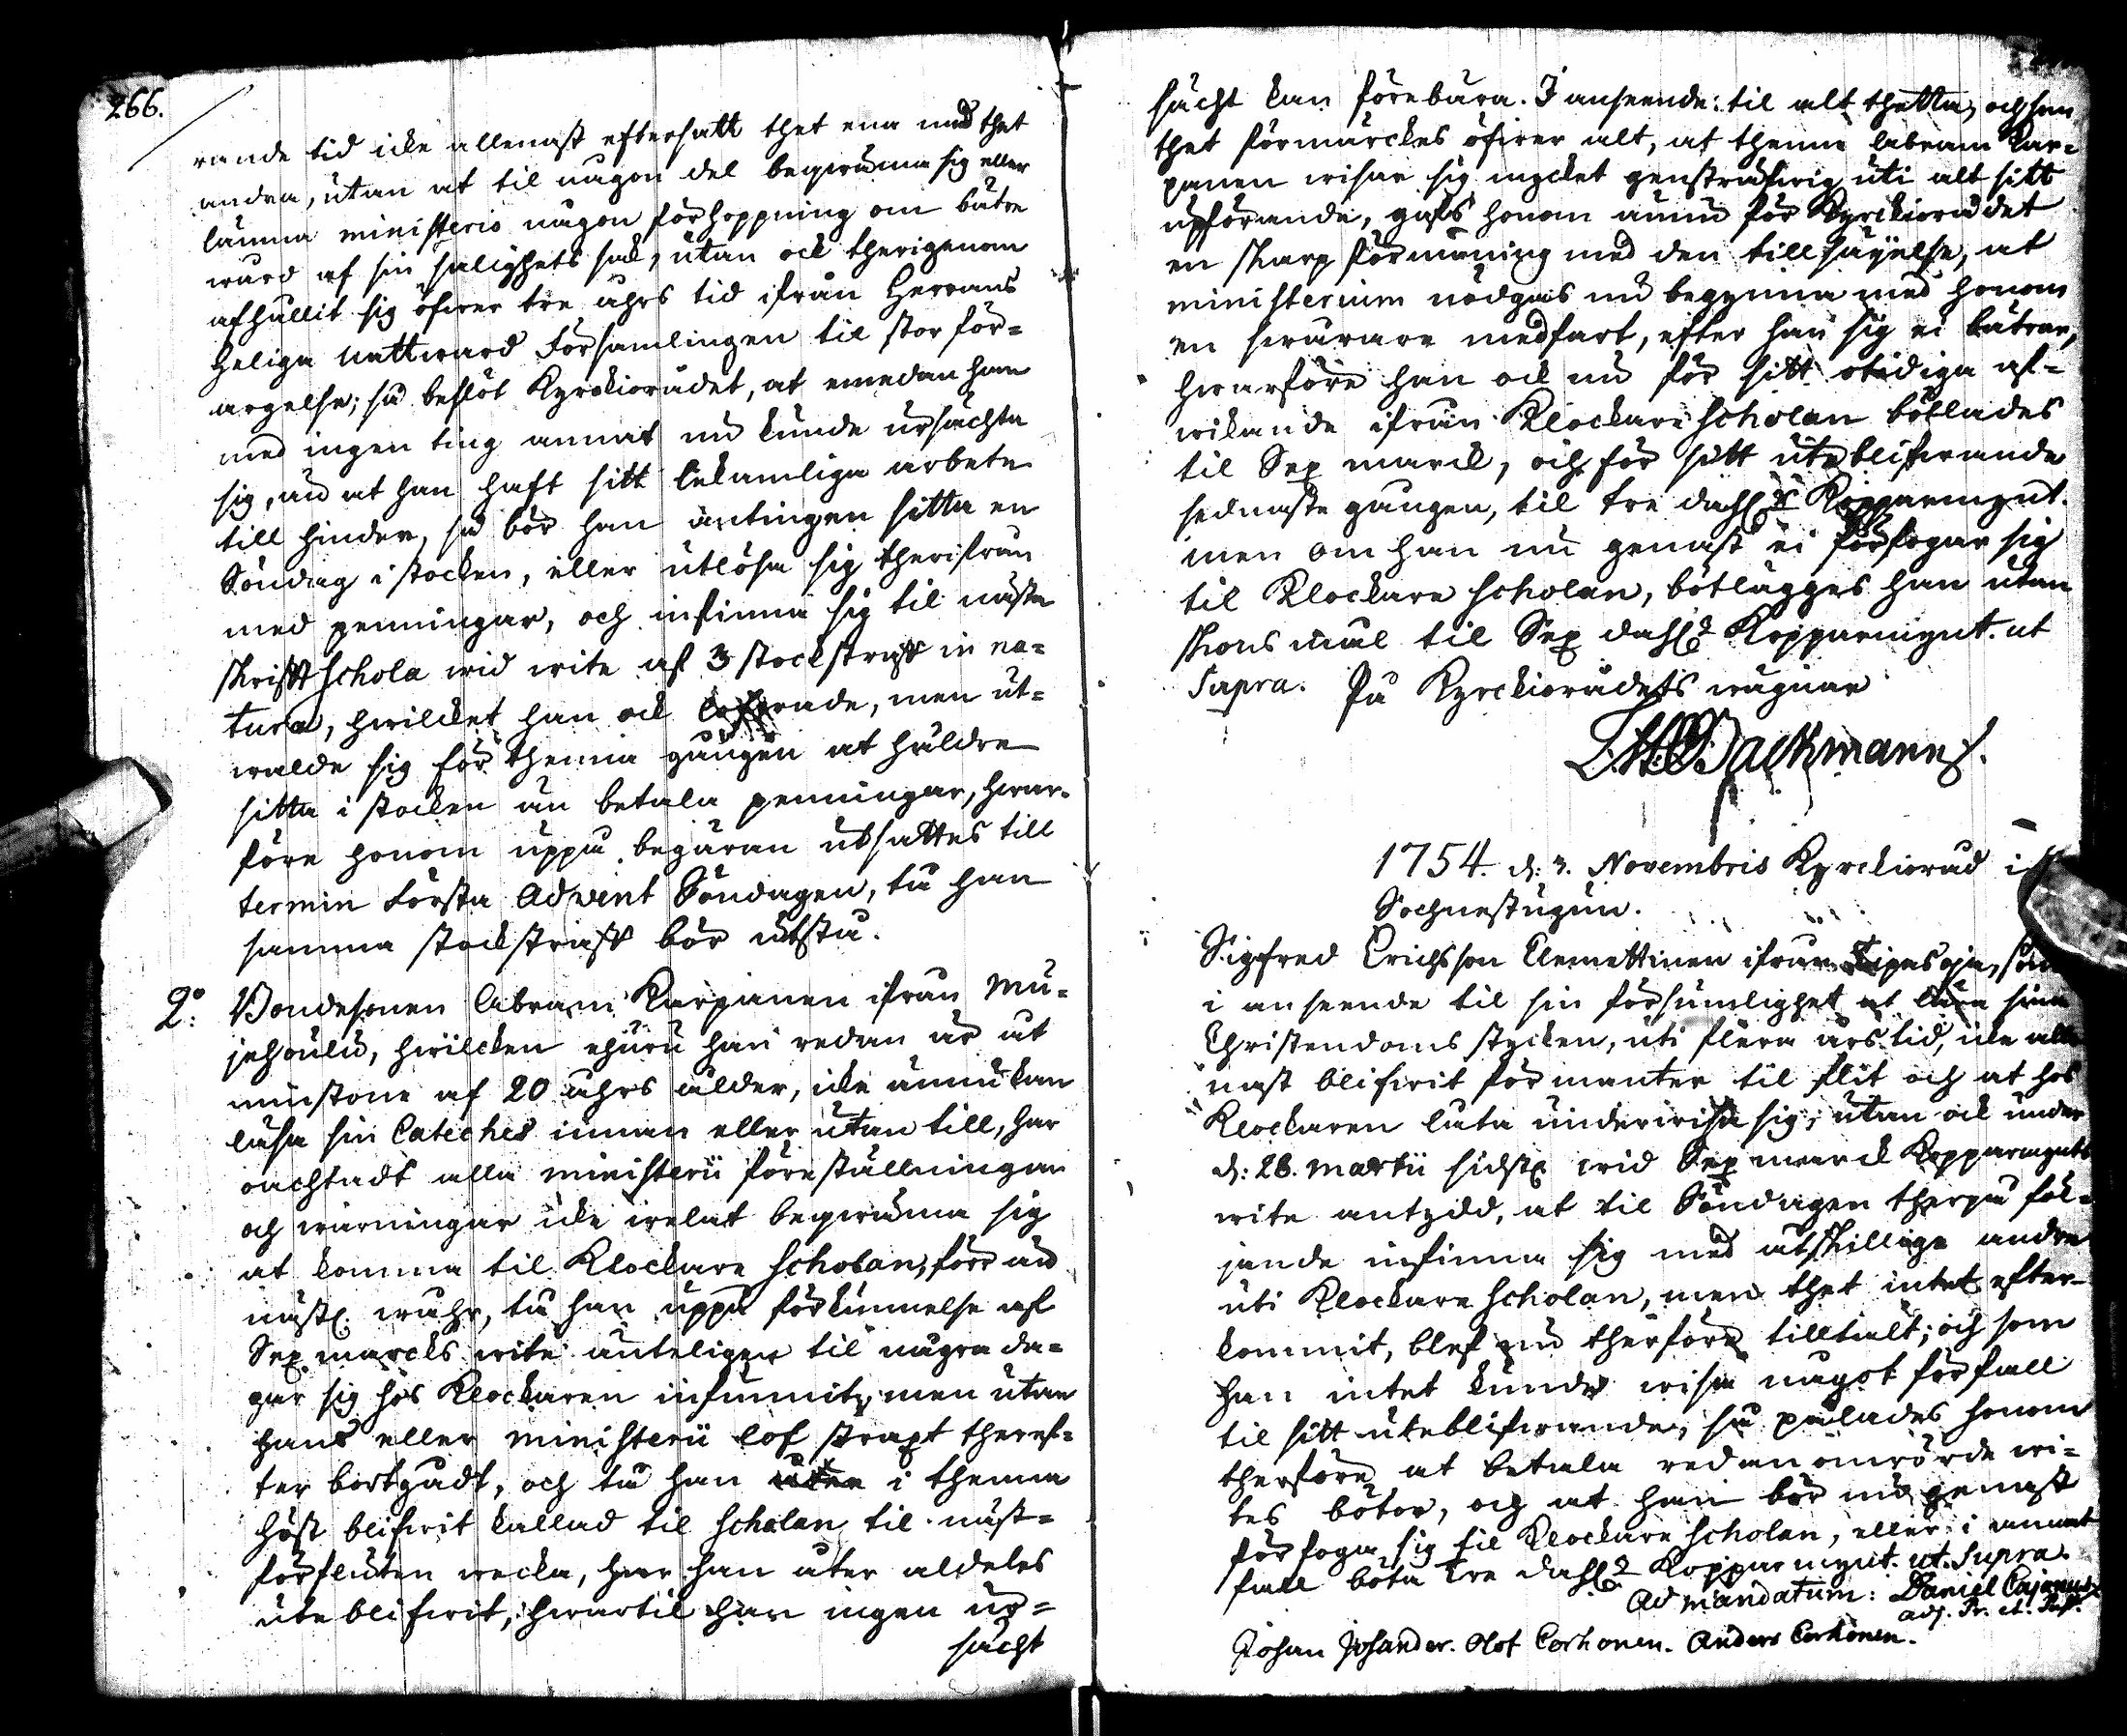 266.
rande tid icke allenast eftersatt thet ena med thet
andra, utan at til någon del beqwäma sig eller
lämna ministerio någon förhoppning om bätre
wård af sin salighets sak, utan ock therigenom
afhållit sig öfwer tre åhrs tid ifrån Herrans
Heliga Nattward Församlingen til stor för-
argelse; så beslöt Kyrckiorådet, at emedan han
med ingen ting annat nu kunde ursächta
sig, än at han haft sitt lekamliga arbete
till hinder, så bör han äntingen sitta en
Söndag i stocken, eller utlösa sig therifrån
med penningar, och infinna sig til nästa
skrifft schola wid wite af 3 stockstraff in na-
tura, hwilcket han ock lofwade, men ut-
walde sig för thenna gången at häldre
sitta i stocken än betala penningar, hwar-
före honom uppå begäran utsattes till
termin Första Advent Söndagen, tå han
samma stockstraff bör utstå.
2:o Bondesonen Abram Karpanen ifrån Mu-
jehoulu, hwilcken ehuru han redan är at
minstone af 20 åhrs ålder, icke ännu kan
läsa sin Cateches innan eller utan till, har
oachtadt alla ministerii föreställningar
och warningar icke welat beqwäma sig
at komma til Klockare scholan, förr än
näst. wåhr, tå han uppå förkunnelse af
Sex marcks wite änteligen til några da-
gar sig hos Klockaren infunnit, men utan
hans eller ministerii lof straxt theref-
ter bortgådt, och tå han i thenna
höst blifwit kallad til scholan til näst-
förfluten wecka, har han åter aldeles
uteblifwit, hwartil han ingen ur-
sächt
sächt kan förebära. I anseende til alt thetta, och som
thet förmärckes öfwer alt, at thenne Abram Kar-
panen wisar sig mycket genstridig uti alt sitt
upförande, gafs honom ännu för Kyrckiorådet
en skarp förmaning med den tillsäyelse, at
ministerium nödgas nu begynna med honom
en swårare medfart, efter han sig ei bätrar,
hwarföre han ock nu för sitt otidiga af-
wikande ifrån Klockare scholan bötlades
til Sex marck, och för sitt uteblifwande
sednaste gången, til tre dahl:r Kopparmynt.
men om han nu genast ei förfogar sig
til Klockare scholan, bötlägges han utan
skonsmål til Sex dahl:r Kopparmynt. ut
Supra. På Kyrckiorådets wägnar
Backmann.
1754. d: 3. Novembris Kyrckioråd i
Sochnestugun.
Sigfred Erichsson Clemettinen ifrån Tipasoja, som
i anseende til sin försumlighet at lära sina
Christendoms stycken, uti flera års tid, icke alle-
nast blifwit förmanter til flit och at hos
Klockaren låta underwisa sig, utan ock under
d: 28. Martii sidst. wid Sex marck Kopparmynts
wite antydd, at til Söndagen therpå föl-
jande infinna sig med åtskillige andre
uti Klockare scholan, men thet intet efter-
kommit, blef nu therföre tilltalt; och som
han intet kunde wisa något förfall
til sitt uteblifwande, så pålades honom
therföre at betala redan omrörde wi-
tes böter, och at han bör nu genast
förfoga sig til Klockare scholan, eller i annat
fall böta Tre dahl:r Kopparmynt. ut. Supra.
Ad mandatum: Daniel Cajanus
adj. Pr. et. Past.
Johan Johander. Olof Corhonen. Anders Corhonen.